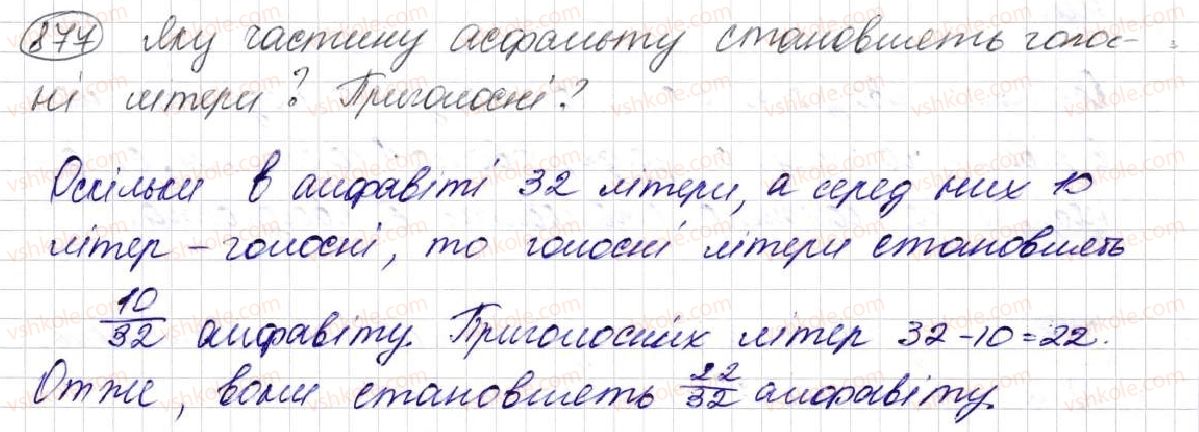 877 Яку частину асфальту становлять голос-
ні літери? Приголосні?
Оскільки в алфавіті 32 літери, а серед них 10
літер – голосні, то голосні літери становлять
10/32 алфавіту. Приголосних літер 32-10=22.
Отже, вони становлять 22/32 алфавіту.